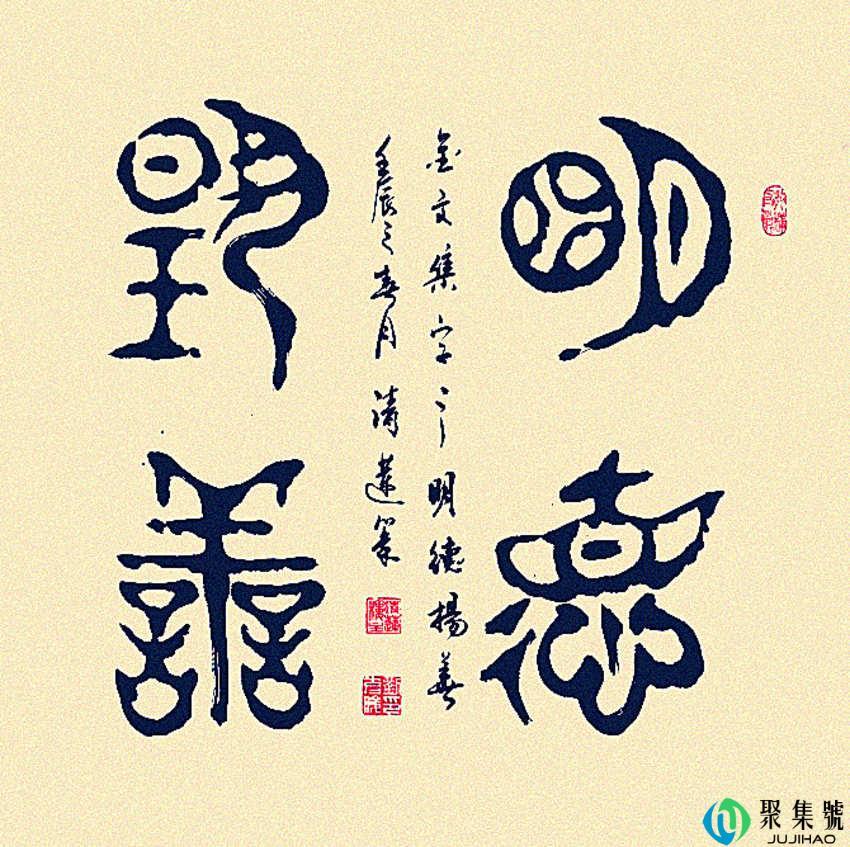 明德
揚善
金文集字之明德揚善
壬辰之春月清蓮篆
聚集號
JUJIHAO